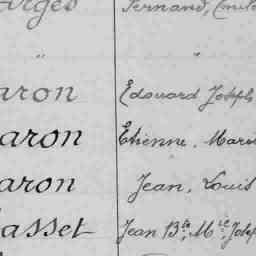 arges Fernand, Emile
" "
aron Edouard Joseph
aron Etienne, Marie
aron Jean, Louis
asset Jean Bte, Mie, Josep